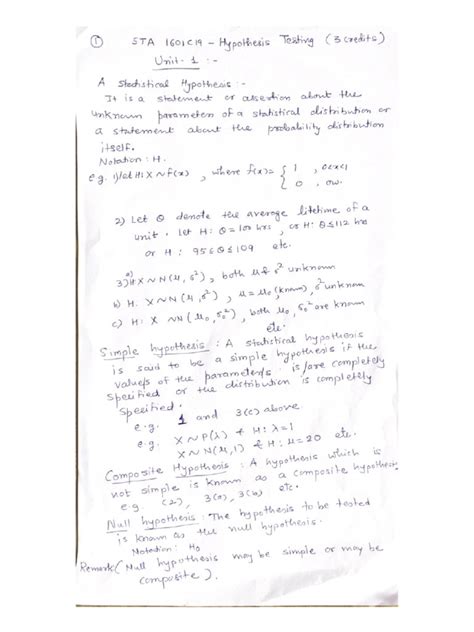 ① STA 1601C19 - Hypothesis Testing (3 credits)
Unit - 1 :-
A Stochistical Hypothesis :-
It is a statement or assertion about the
unknown parameters of a statistical distribution or
a statement about the probability distribution
itself.
Notation : H.
e.g. 1) let H: X ~ f(x) , where f(x) = { 1 , 0<x<1
0 , ow.
2) Let θ denote the average lifetime of a
unit. let H: θ = 100 hrs , or H: θ ≤ 112 hrs
or H : 95 ≤ θ ≤ 109 etc.
3) a) H: X ~ N(μ, σ²) , both μ & σ² unknown
b) H. X ~ N(μ, σ²) , μ = μ₀ (known), σ² unknown
c) H: X ~ N(μ₀, σ₀²) , both μ₀, σ₀² are known
etc.
Simple hypothesis : A statistical hypothesis
is said to be a simple hypothesis if the
value/s of the parameter/s is/are completely
specified or the distribution is completely
specified.
e.g. 1 and 3(c) above
e.g. X ~ P(λ) & H: λ = 1
X ~ N(μ, 1) & H: μ = 20 etc.
Composite Hypothesis : A hypothesis which is
not simple is known as a composite hypothesis
e.g. (2), 3(a), 3(b) etc.
Null hypothesis : The hypothesis to be tested
is known as the null hypothesis.
Notation: H₀
Remark (Null hypothesis may be simple or may be
composite).